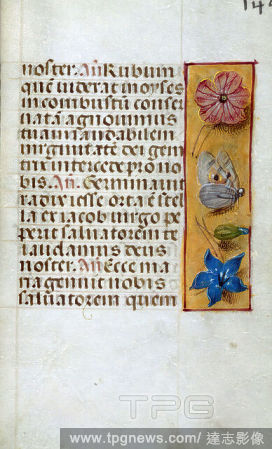 144
noster. An̄ Rubum
quē viderat moyses
incombustū conser
natā agnouimus
tuam laudabilem
uirginitatē dei gen
trix intercede pro no
bis. An̄. Germinauit
radix iesse orta ē stel
la ex iacob uirgo pe
perit saluatorem te
laudamus deus
noster. An̄ Ecce ma
ria genuit nobis
saluatorem quem
TPG
www.tpgnews.com/達志影像